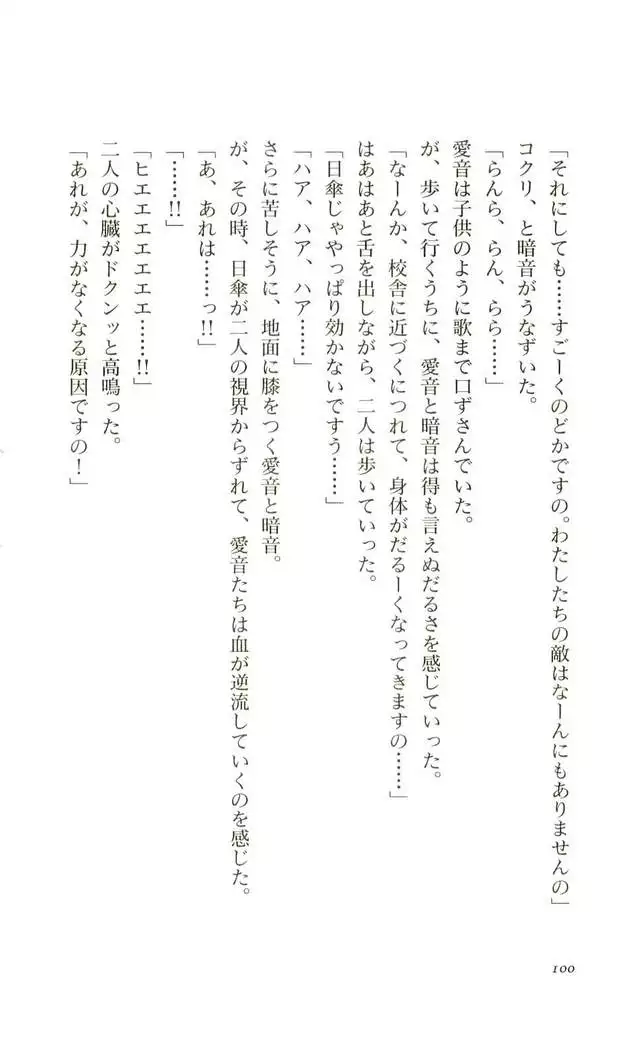 「それにしても……すごーくのどかですの。わたしたちの敵はなーんにもありませんの」
コクリ、と暗音がうなずいた。
「らんら、らん、らら……」
愛音は子供のように歌まで口ずさんでいた。
が、歩いて行くうちに、愛音と暗音は得も言えぬだるさを感じていった。
「なーんか、校舎に近づくにつれて、身体がだるーくなってきますの……」
はあはあと舌を出しながら、二人は歩いていった。
「日傘じゃやっぱり効かないですう……」
「ハア、ハア、ハア……」
さらに苦しそうに、地面に膝をつく愛音と暗音。
が、その時、日傘が二人の視界からずれて、愛音たちは血が逆流していくのを感じた。
「あ、あれは……っ!!」
「……!!」
「ヒエエエエエエ……!!」
二人の心臓がドクンッと高鳴った。
「あれが、力がなくなる原因ですの！」
100